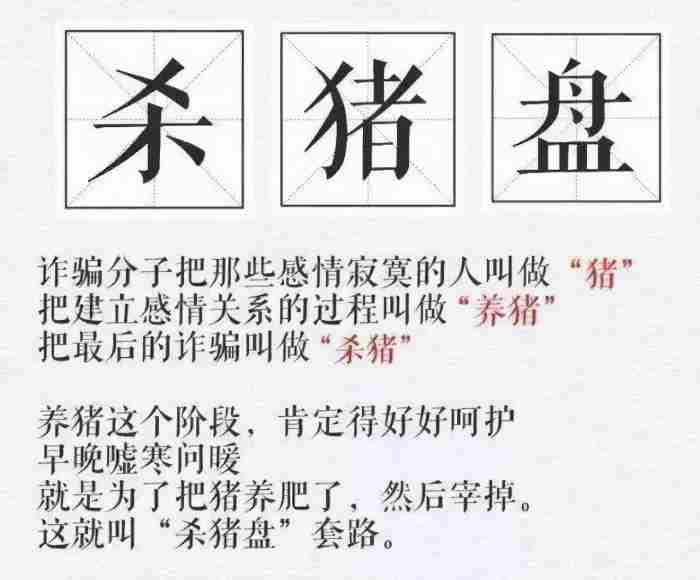 杀猪盘
诈骗分子把那些感情寂寞的人叫做“猪”
把建立感情关系的过程叫做“养猪”
把最后的诈骗叫做“杀猪”
养猪这个阶段，肯定得好好呵护
早晚嘘寒问暖
就是为了把猪养肥了，然后宰掉。
这就叫“杀猪盘”套路。